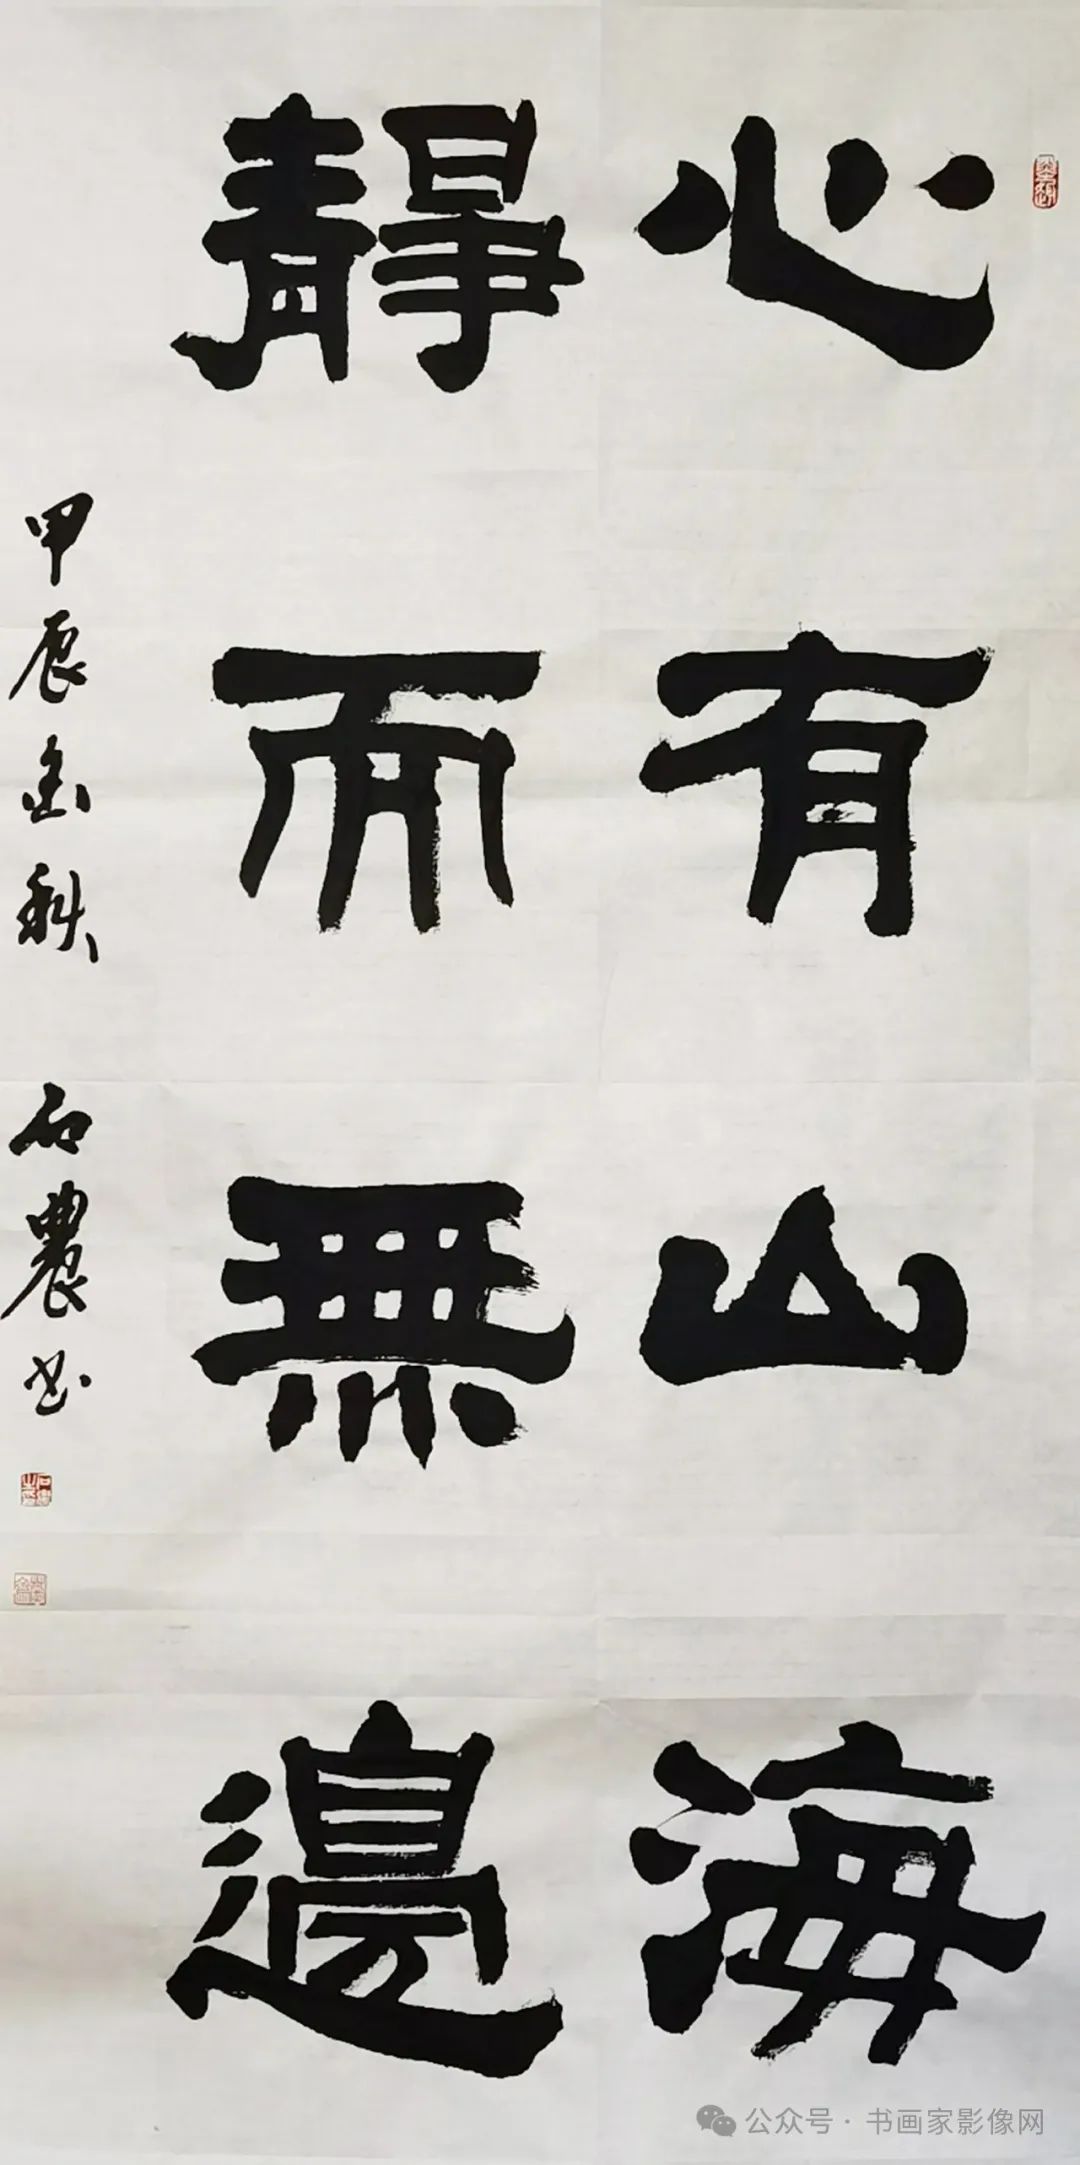 心有山海
靜而無邊
甲辰金秋 石農书
公众号·书画家影像网